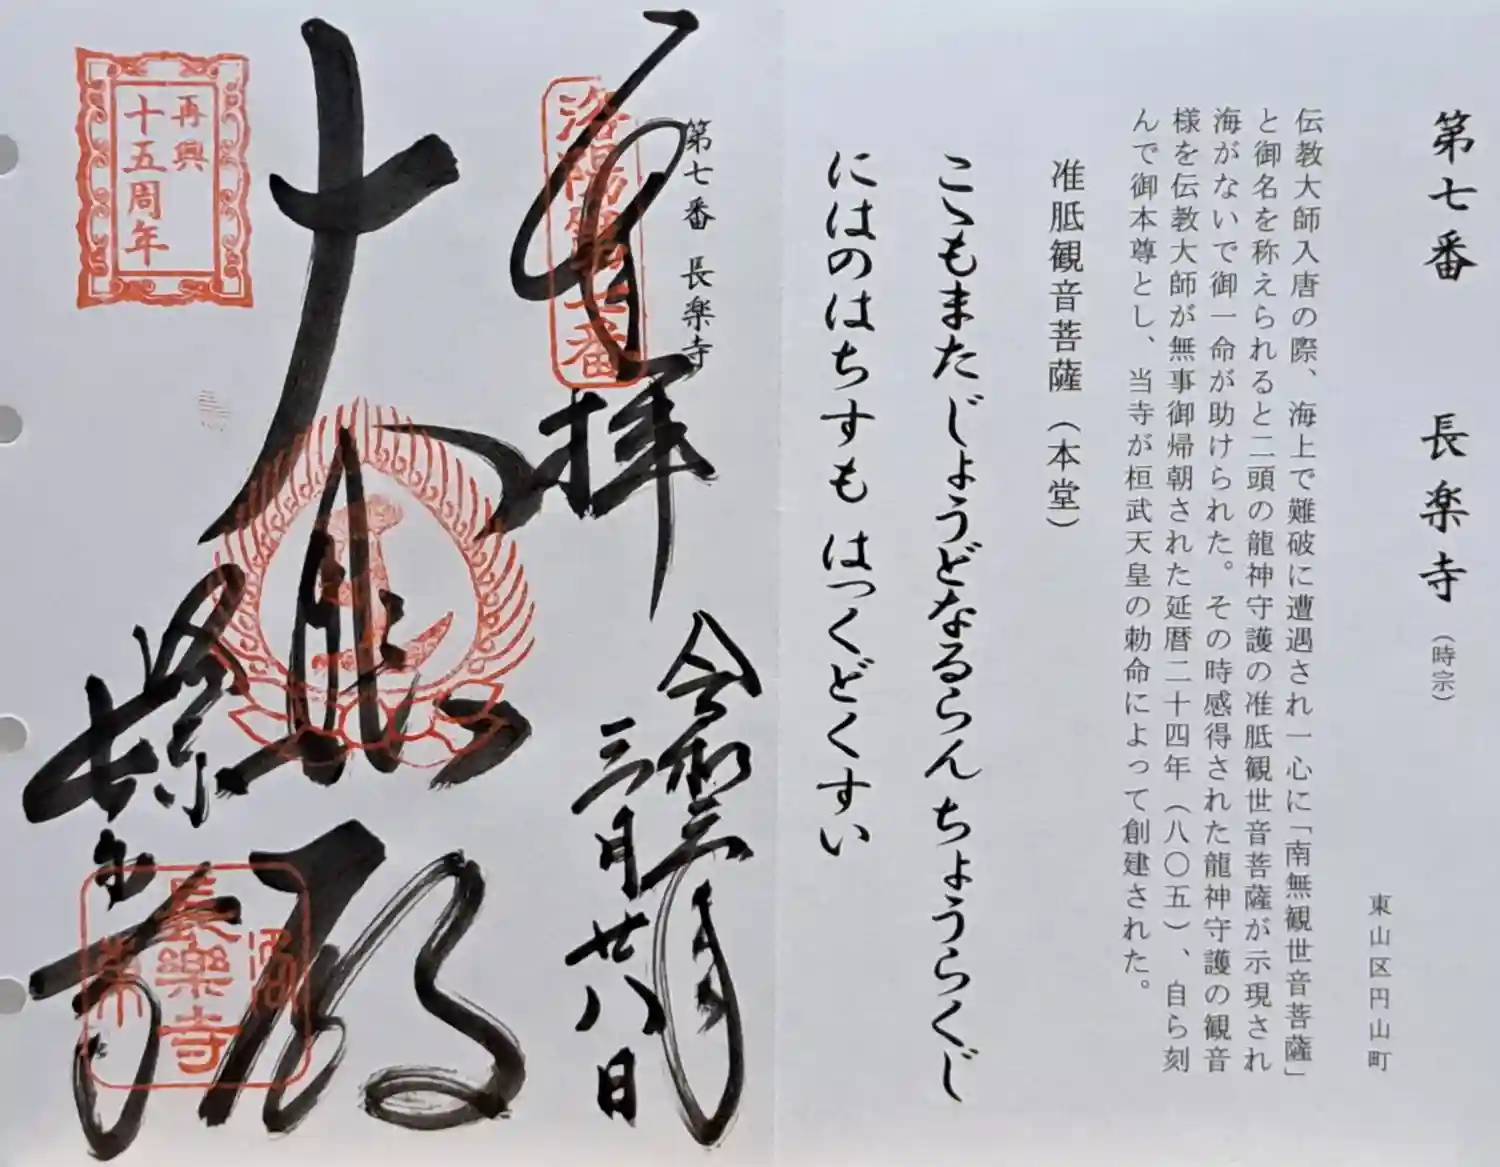 第七番 長楽寺（時宗）
東山区円山町
伝教大師入唐の際、海上で難破に遭遇され一心に「南無観世音菩薩」
と御名を称えられると二頭の龍神守護の准胝観世音菩薩が示現され
海がないで御一命が助けられた。その時感得された龍神守護の観音
様を伝教大師が無事御帰朝された延暦二十四年（八〇五）、自ら刻
んで御本尊とし、当寺が桓武天皇の勅命によって創建された。
准胝観音菩薩（本堂）
こゝもまたじょうどなるらん ちょうらくじ
にはのはちすも はっくどくすい
第七番 長楽寺
洛陽第七番
奉拝
令和二年
三月廿八日
大悲殿
長楽寺
再興
十五周年
長樂寺